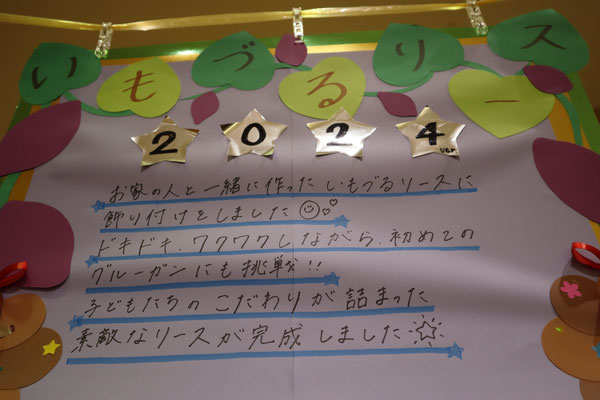 いもづるリース
2024
お家の人と一緒に作ったいもづるリースに
飾り付けをしました
ドキドキ、ワクワクしながら、初めての
グルーガンにも挑戦!!
子どもたちのこだわりが詰まった
素敵なリースが完成しました